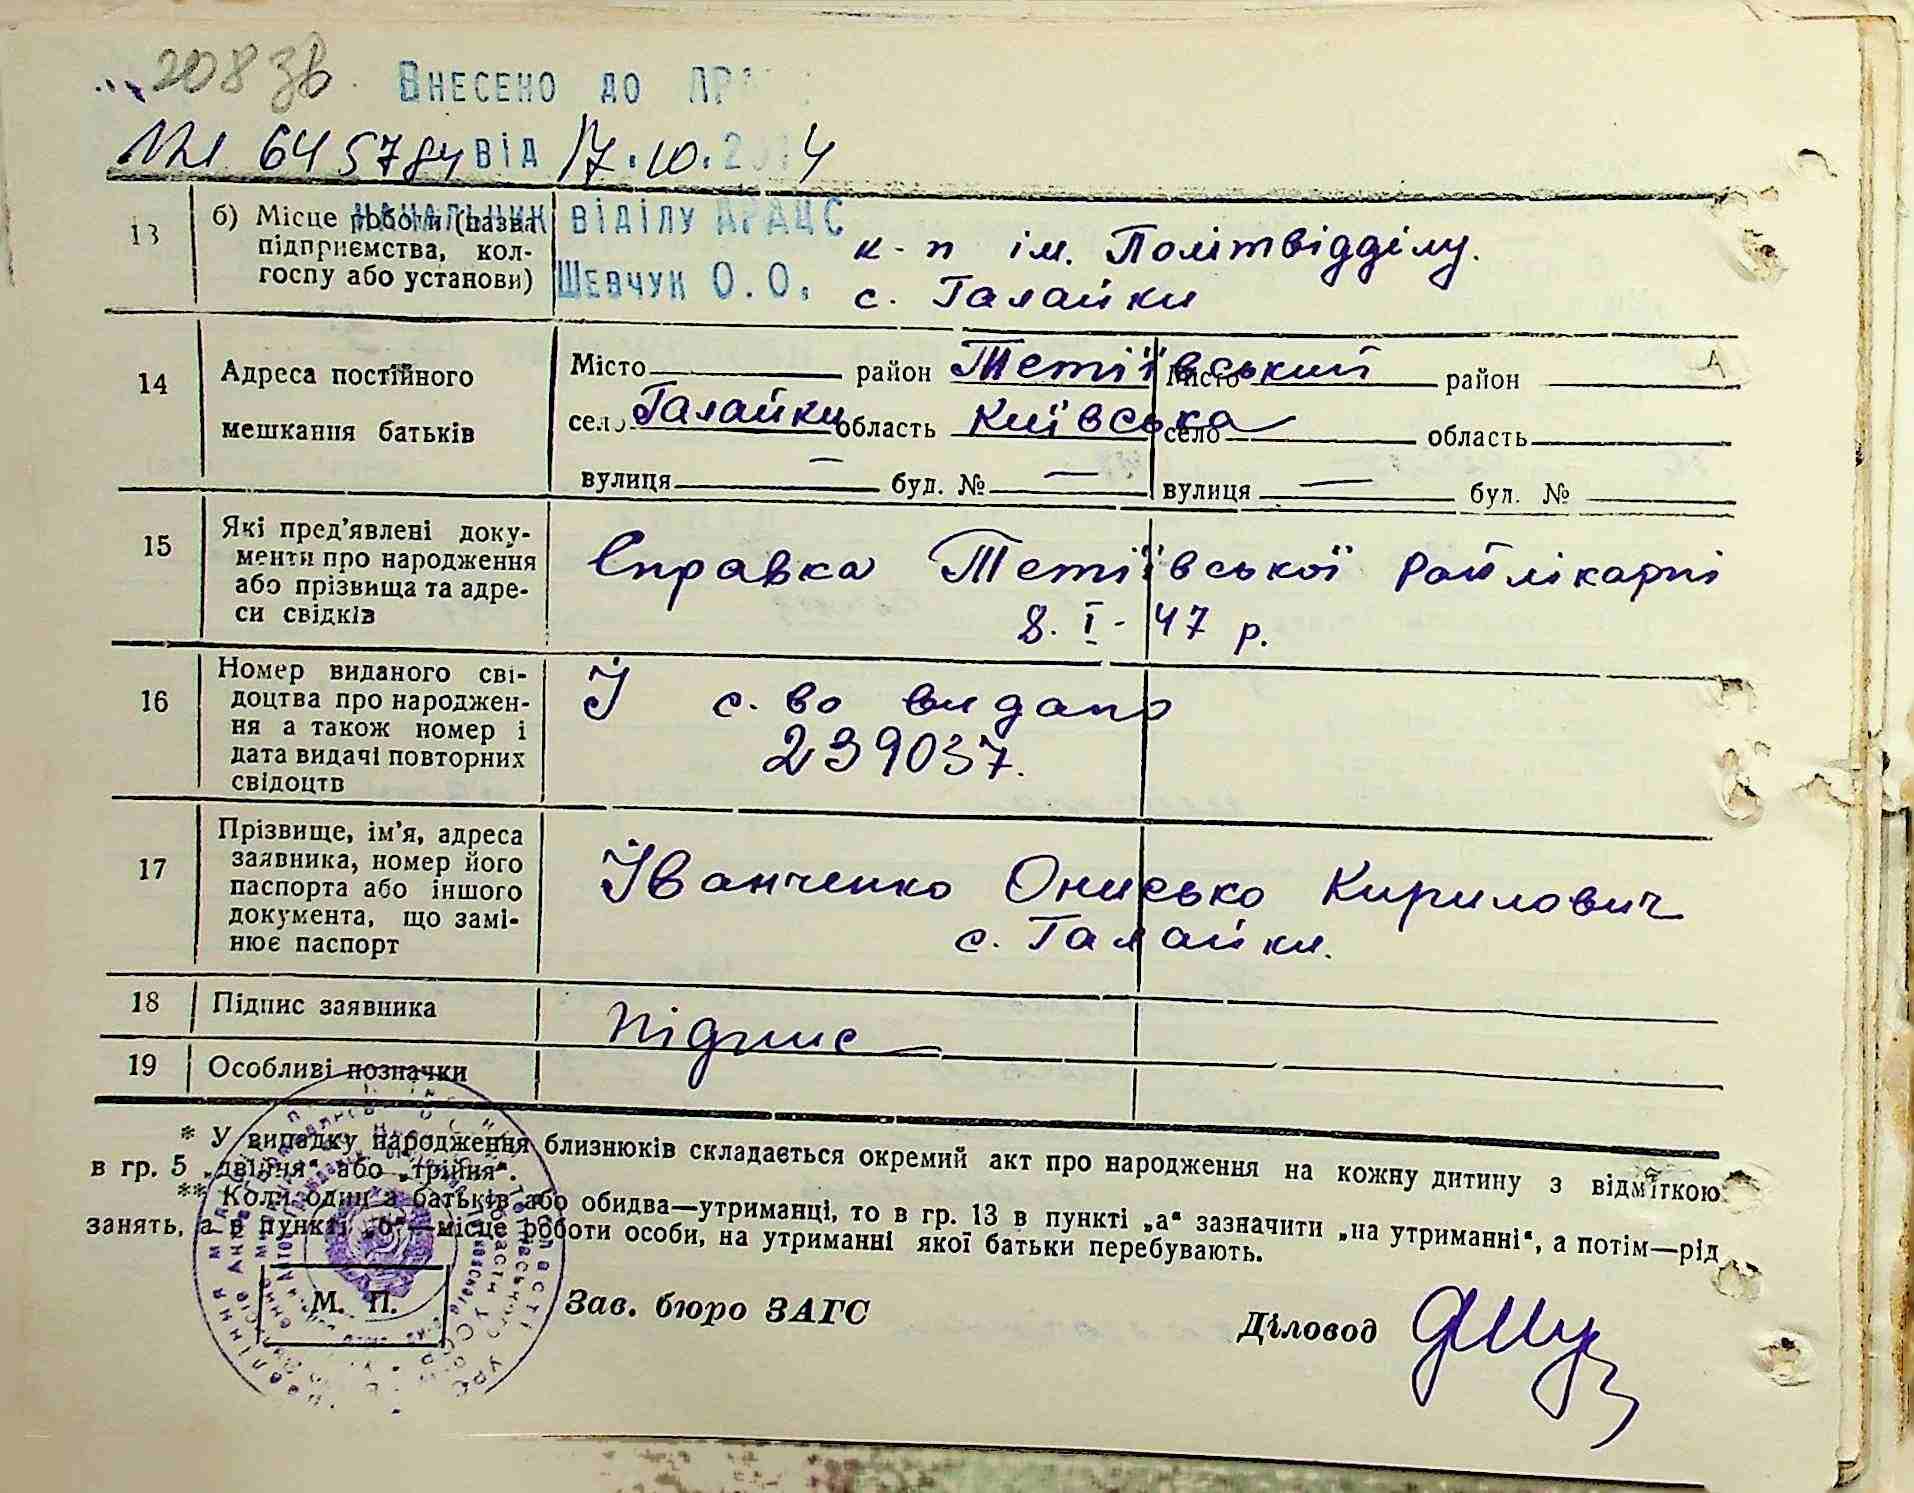 208 зв.
Внесено до
№ 645784 від 17.10.2014
13
б) Місце роботи (назва підприємства, кол-
госпу або установи)
Начальник відділу ДРАЦС
Шевчук О. О.
к-п ім. Політвідділу.
с. Галайки
14
Адреса постійного
мешкання батьків
Місто район Тетіївський
село Галайки область Київська
вулиця — буд. № —
Місто район
село область
вулиця — буд. №
15
Які пред’явлені доку-
менти про народження
або прізвища та адре-
си свідків
Справка Тетіївської райлікарні
8. I - 47 р.
16
Номер виданого сві-
доцтва про народжен-
ня а також номер і
дата видачі повторних
свідоцтв
І с-во видано
239037.
17
Прізвище, ім’я, адреса
заявника, номер його
паспорта або іншого
документа, що замі-
нює паспорт
Іванченко Онисько Кирилович
с. Галайки.
18
Підпис заявника
підпис
19
Особливі позначки
* У випадку народження близнюків складається окремий акт про народження на кожну дитину з відміткою
в гр. 5 „двійня“ або „трійня“.
** Коли один а батьків або обидва—утриманці, то в гр. 13 в пункті „а“ зазначити „на утриманні“, а потім—рід
занять, а в пункті „б“—місце роботи особи, на утриманні якої батьки перебувають.
М. П.
Зав. бюро ЗАГС
Діловод